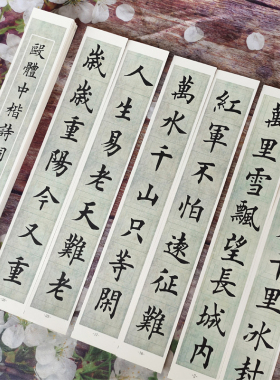 千里冰封
萬里雪飄望長城内
紅軍不怕遠征難
萬水千山只等閑
人生易老天難老
歳歳重陽今又重
歐體中楷詩詞